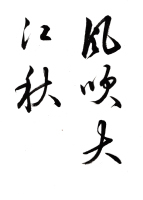 風吹大
江秋